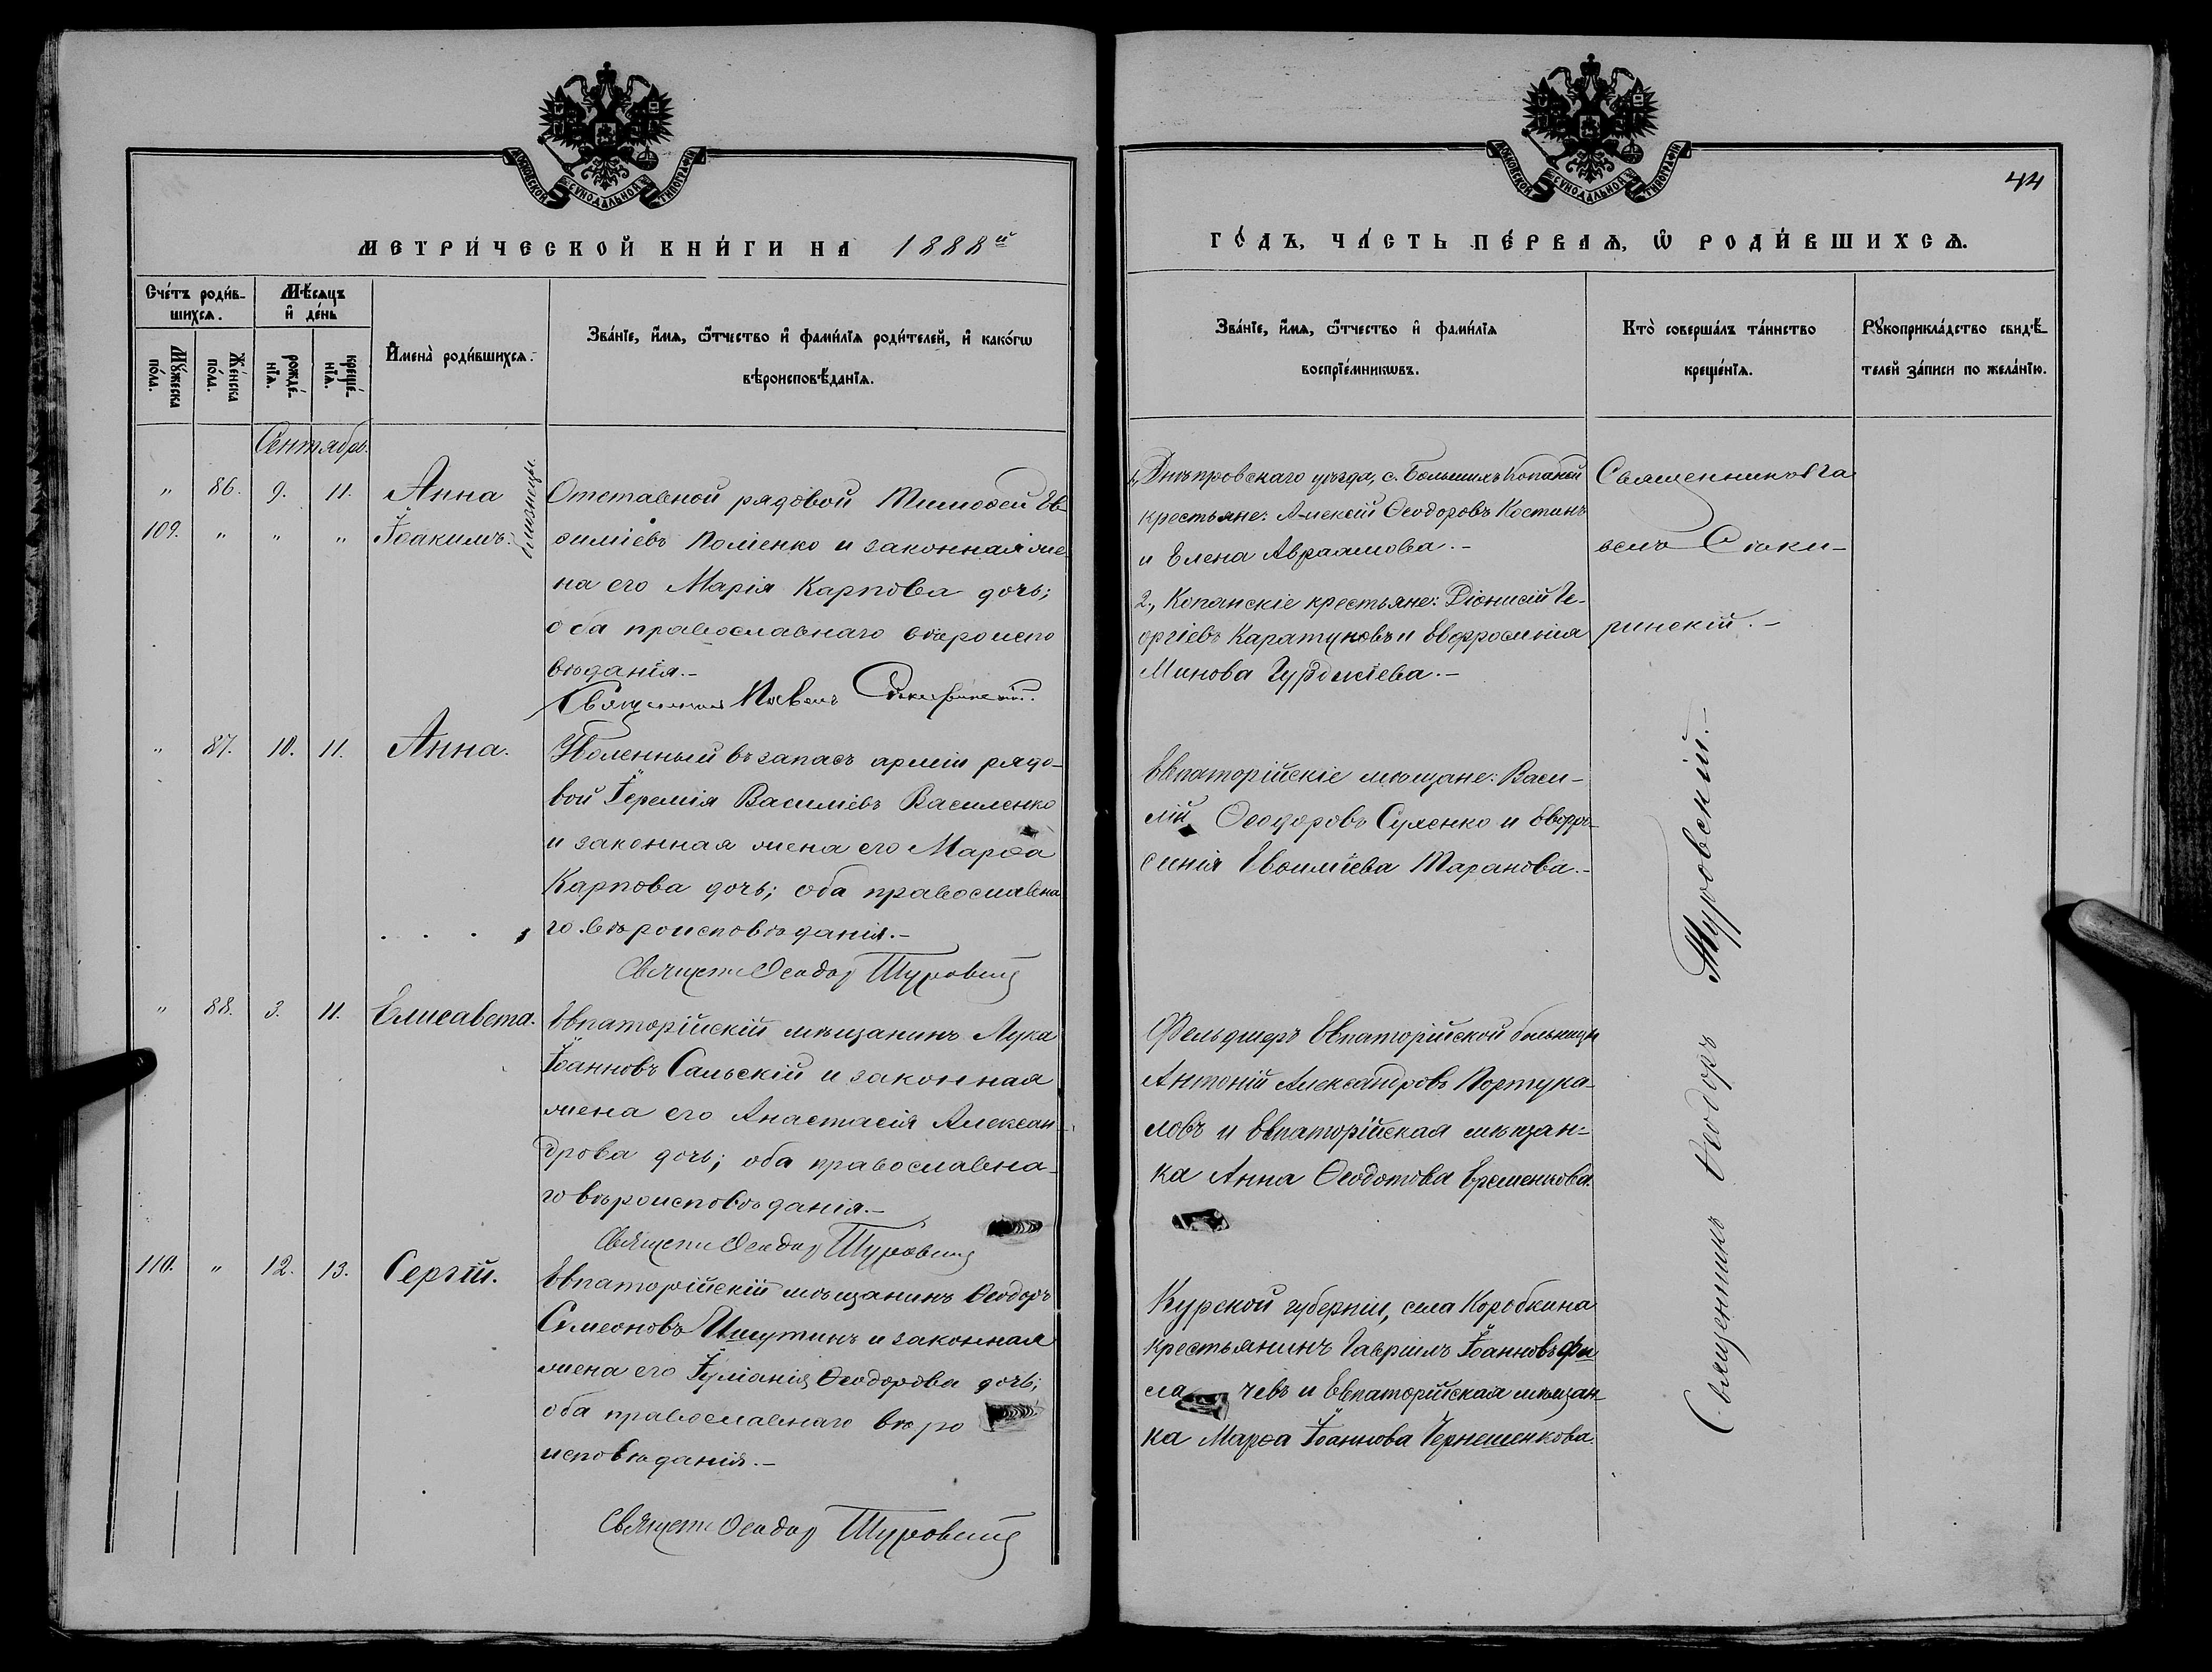 МОСКОВСКОЙ СУНОДАЛЬНОЙ ТИПОГРАФІИ
МЕТРИ́ЧЕСКОЙ КНИ́ГИ НА 1888й
Сче́тъ роди́в-
шихсѧ.
Мѣ́сѧцъ
и҆ де́нь
И҆мена̀ роди́вшихсѧ.
Зва́нїе, и҆́мѧ, ѻ҆́тчество и҆ фами́лїѧ роди́телей, и҆ како́гѡ
вѣроисповѣ́данїѧ.
Мꙋ́жеска
по́ла.
Же́нска
по́ла.
рожде́-
нїѧ.
креще́-
нїѧ.
Сентябрь.
" 86. 9. 11. Анна
109. " " " Іоакимъ.
близнецы.
Отставной рядовой Тимоѳей Ев-
ѳиміевъ Поліенко и законная же
на его Марія Карпова дочь;
оба православнаго вѣроиспо
вѣданія.-
Священникъ Павелъ
" 87. 10. 11. Анна.
Уволенный въ запасъ арміи рядо-
вой Іеремія Василіевъ Василенко
и законная жена его Марѳа
Карпова дочь; оба православна
го вѣроисповѣданія.-
Священ. Ѳеодоръ Туровскій
" 88. 3. 11. Елисавета.
Евпаторійскій мѣщанинъ Лука
Іоанновъ Сальскій и законная
жена его Анастасія Алексан-
дрова дочь; оба православна-
го вѣроисповѣданія.-
Священ. Ѳеодоръ Туровскій
110. " 12. 13. Сергій.
Евпаторійскій мѣщанинъ Ѳеодоръ
Симеоновъ Ишутинъ и законная
жена его Іуліанія Ѳеодорова дочь;
оба православнаго вѣро
исповѣданія.-
Священ. Ѳеодоръ Туровскій
МОСКОВСКОЙ СУНОДАЛЬНОЙ ТИПОГРАФІИ
44
ГО́ДЪ, ЧА́СТЬ ПЕ́РВАѦ, Ѡ҆ РОДИ́ВШИХСѦ.
Зва́нїе, и҆́мѧ, ѻ҆́тчество и҆ фами́лїѧ
воспрїе́мникѡвъ.
Кто̀ соверша́лъ та́инство
креще́нїѧ.
Рꙋкоприкла́дство свидѣ́-
телей за́писи по жела́нїю.
1, Днѣпровскаго уѣзда, с. Большихъ Копаней
крестьяне: Алексій Ѳеодоровъ Костинъ
и Елена Авраамова.-
2., Копанскіе крестьяне: Діонисій Ге-
оргіевъ Каратуновъ и Евфросинія
Минова Гурджіева.-
Священникъ Па
велъ
ринскій.-
Евпаторійскіе мѣщане: Васи-
лій Ѳеодоровъ Суленко и Евфро-
синія Евѳиміева Таранова.-
Фельдшеръ Евпаторійской больницы
Антоній Александровъ Портука-
ловъ и Евпаторійская мѣщан-
ка Анна Ѳеодотова Еременкова.
Курской губерніи, села Коробкина
крестьянинъ Гавріилъ Іоанновъ Фи
ла чевъ и Евпаторійская мѣщан-
ка Марѳа Іоаннова Чернешенкова.
Священникъ Ѳеодоръ Туровскій.-